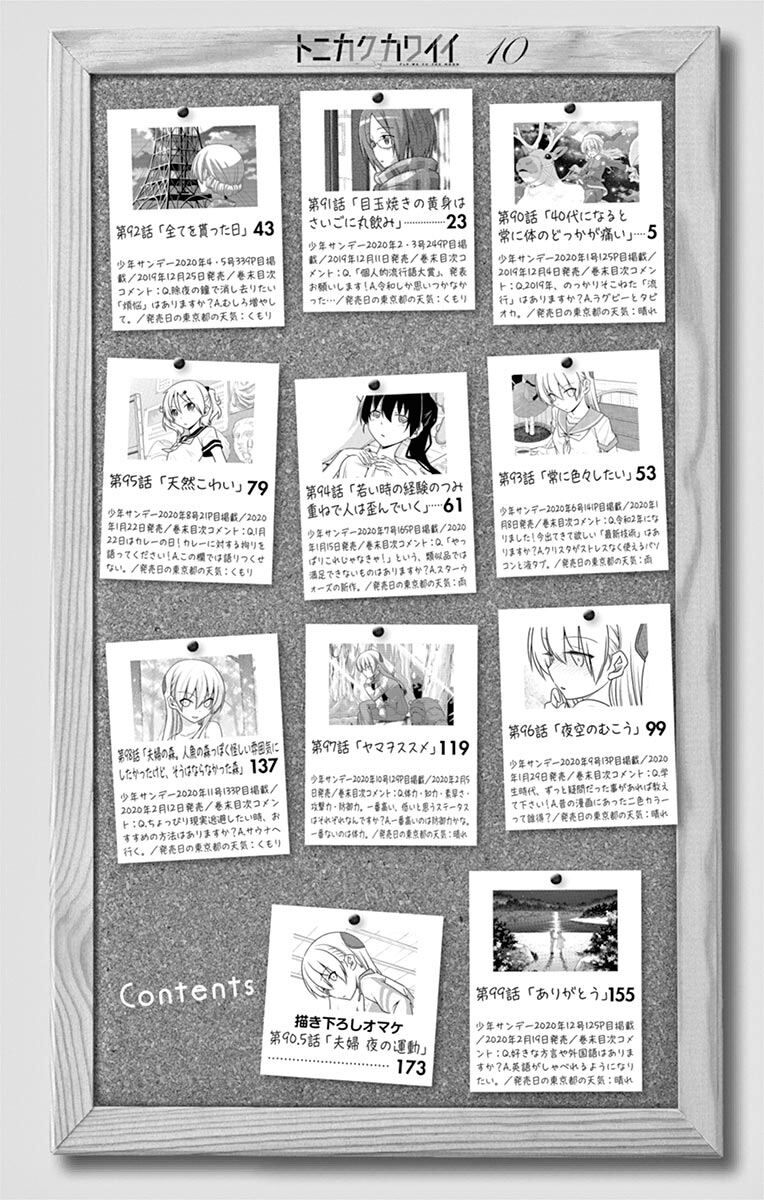 トニカクカワイイ 10
FLY ME TO THE MOON
第90話「40代になると
常に体のどっかが痛い」…5
少年サンデー2020年1号125P目掲
載/2019年12月4日発売/巻末目次
コメント:Q.2019年、のっかりそこねた「流
行」はありますか?A.ラグビーとタピ
オカ。/発売日の東京都の天気:晴れ
第91話「目玉焼きの黄身は
さいごに丸飲み」……………23
少年サンデー2020年2・3号249P目掲
載/2019年12月11日発売/巻末目次コ
メント:Q.「個人的流行語大賞」、発表
お願いします!A.令和しか思いつかなか
った…/発売日の東京都の天気:くもり
第92話「全てを貰った日」43
少年サンデー2020年4・5号339P目掲
載/2019年12月25日発売/巻末目次
コメント:Q.除夜の鐘で消し去りたい
「煩悩」はありますか?A.むしろ増やし
て。/発売日の東京都の天気:くもり
第93話「常に色々したい」53
少年サンデー2020年6号141P目掲載/2020年1
月8日発売/巻末目次コメント:Q.令和2年にな
りました!今出てきて欲しい「最新技術」はあ
りますか?A.クリスタがストレスなく使えるパソ
コンと液タブ。/発売日の東京都の天気:雨
第94話「若い時の経験のつみ
重ねで人は歪んでいく」……61
少年サンデー2020年7号165P目掲載/2020
年1月15日発売/巻末目次コメント:Q.「やっ
ぱりこれじゃなきゃ!」という、類似品では
満足できないものはありますか?A.スターウ
ォーズの新作。/発売日の東京都の天気:雨
第95話「天然こわい」79
少年サンデー2020年8号21P目掲載/2020
年1月22日発売/巻末目次コメント:Q.1月
22日はカレーの日!カレーに対する拘りを
語ってください!A.この欄では語りつくせ
ない。/発売日の東京都の天気:くもり
第96話「夜空のむこう」99
少年サンデー2020年9号13P目掲載/2020
年1月29日発売/巻末目次コメント:Q.学
生時代、ずっと疑問だった事があれば教え
て下さい!A.昔の漫画にあった二色カラー
って誰得?/発売日の東京都の天気:晴れ
第97話「ヤマヲススメ」119
少年サンデー2020年10号129P目掲載/2020年2月5
日発売/巻末目次コメント:Q.体力・知力・素早さ・
攻撃力・防御力。一番高い、低いと思うステータス
はそれぞれなんですか?A.一番高いのは防御力かな。
一番ないのは体力。/発売日の東京都の天気:晴れ
第98話「夫婦の森。人魚の森っぽく怪しい雰囲気に
したかったけど、そうはならなかった森」137
少年サンデー2020年11号133P目掲載/
2020年2月12日発売/巻末目次コメン
ト:Q.ちょっぴり現実逃避したい時、お
すすめの方法はありますか?A.サウナへ
行く。/発売日の東京都の天気:くもり
第99話「ありがとう」155
少年サンデー2020年12号125P目掲載
/2020年2月19日発売/巻末目次コメ
ント:Q.好きな方言や外国語はありま
すか?A.英語がしゃべれるようになり
たい。/発売日の東京都の天気:晴れ
描き下ろしオマケ
第90.5話「夫婦 夜の運動」
……………………………173
Contents